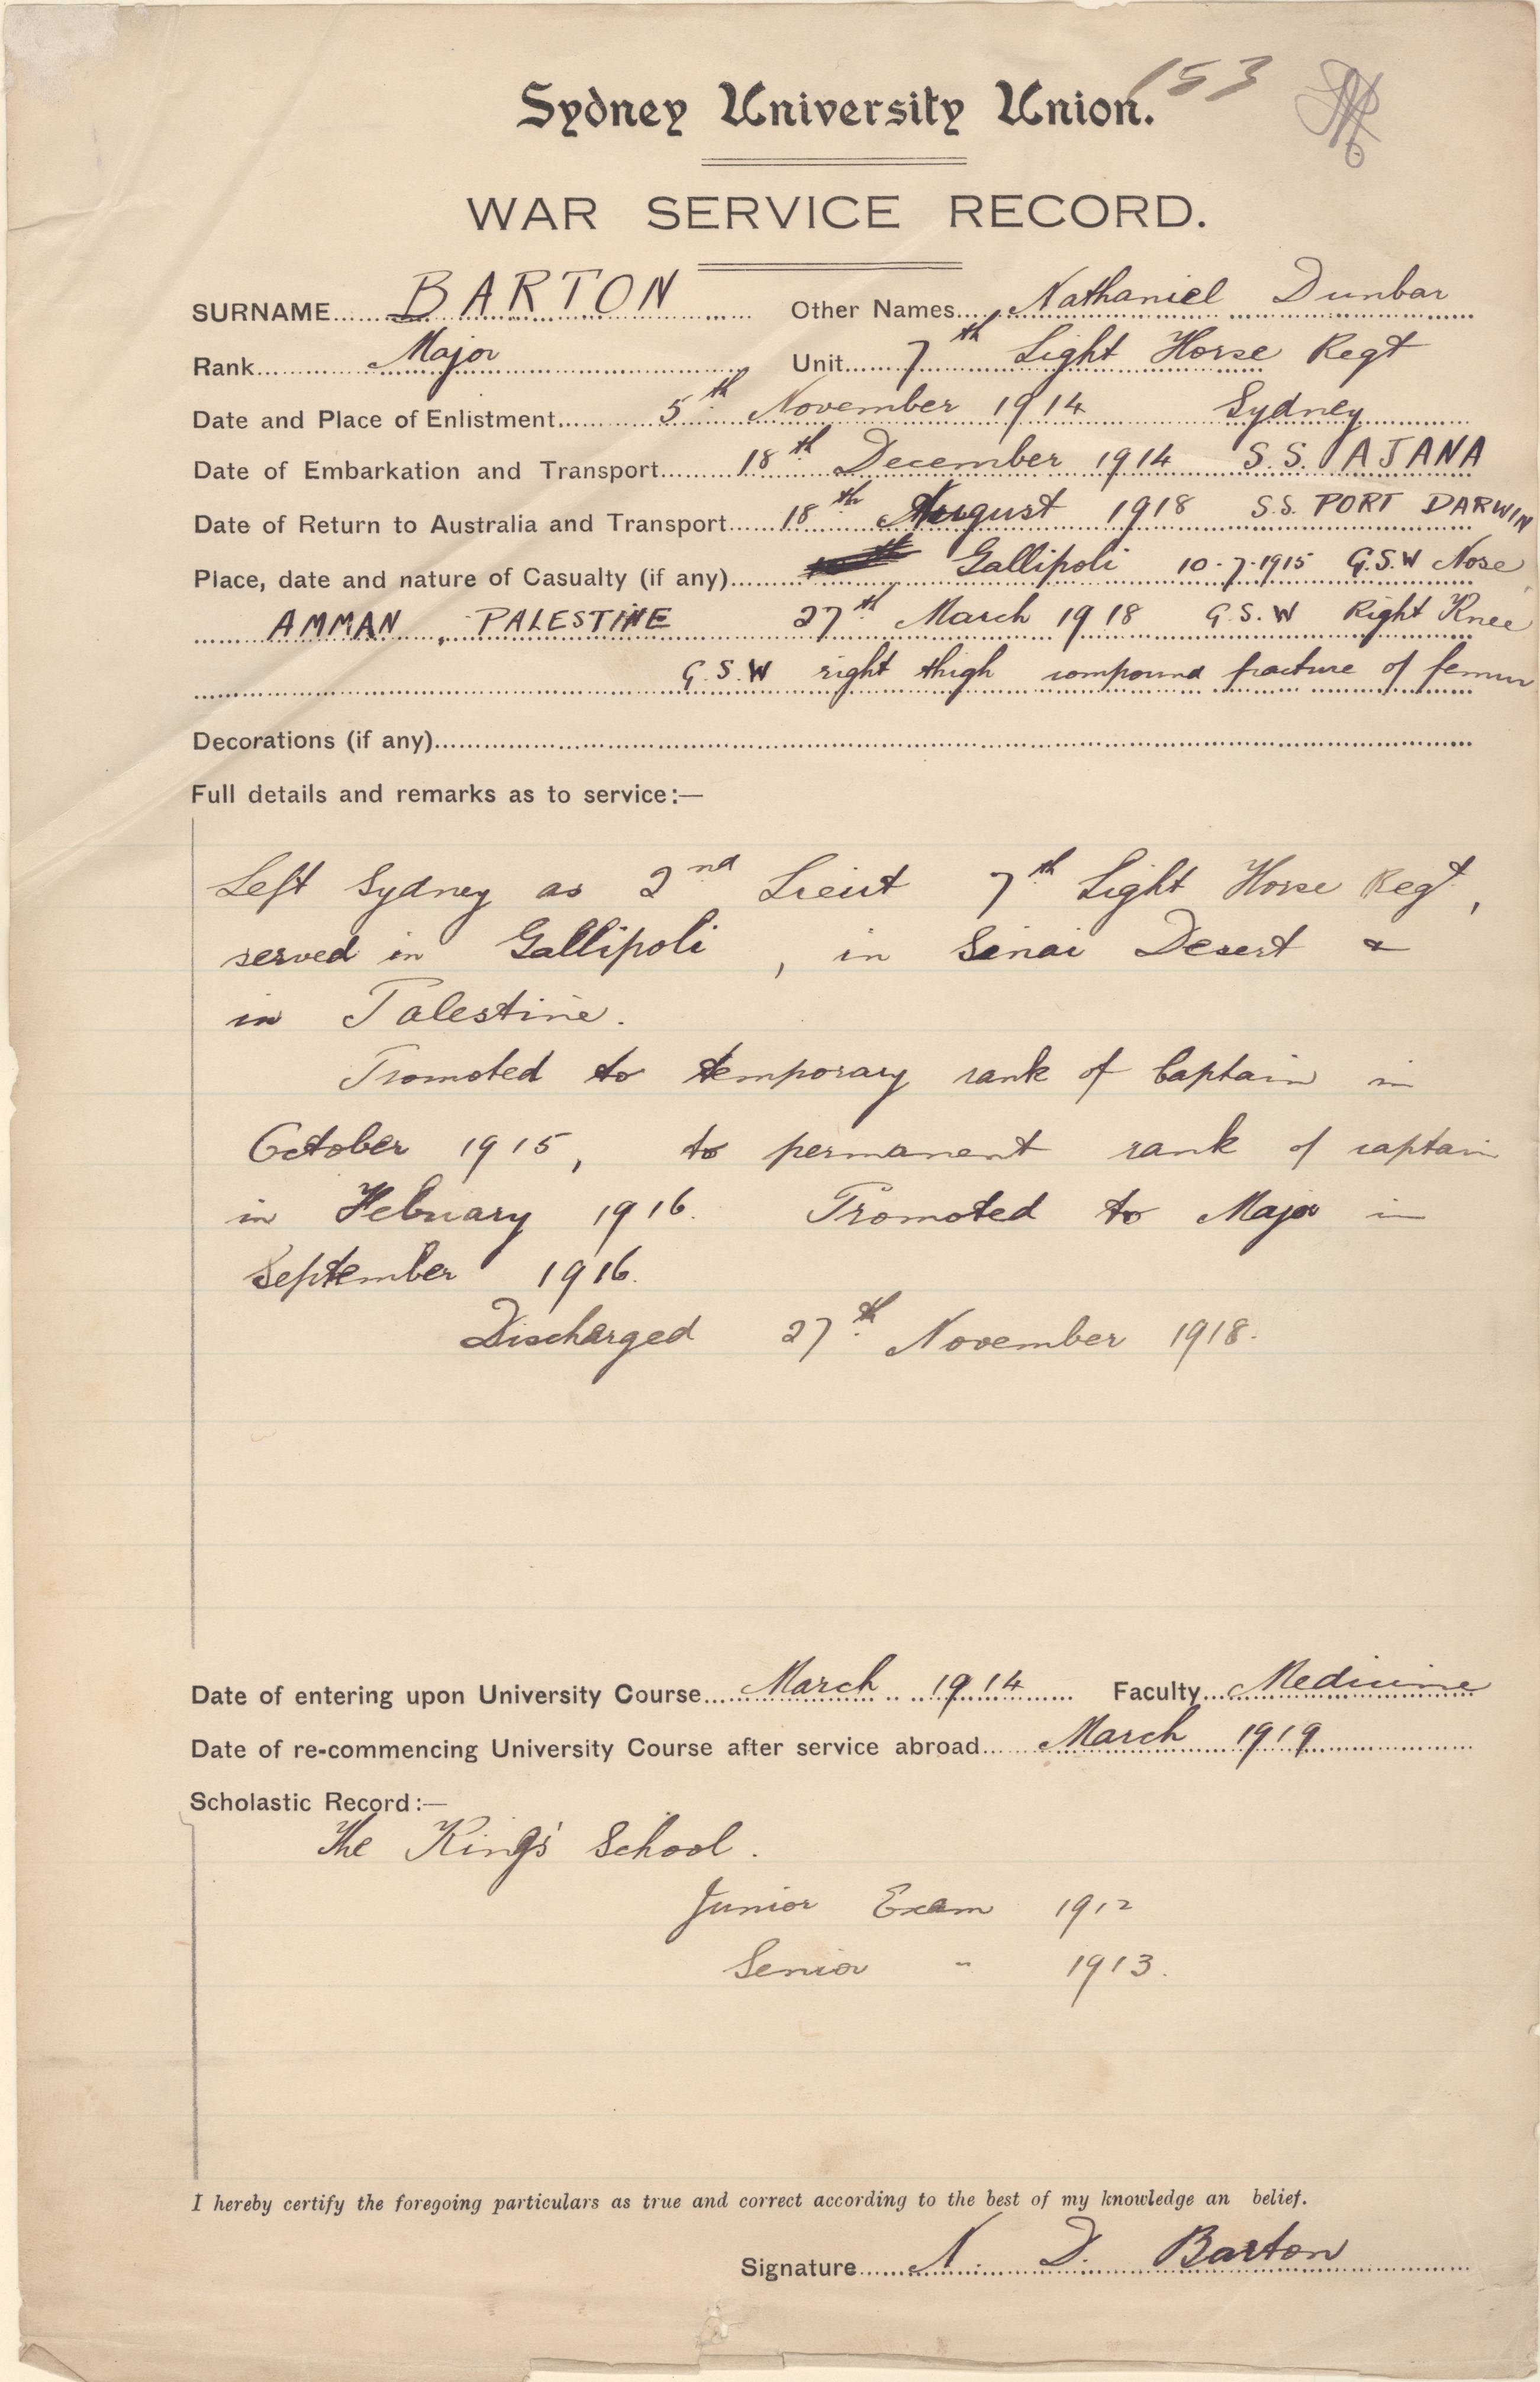 153
Sydney University Union.
WAR SERVICE RECORD.
SURNAME BARTON Other Names Nathaniel Dunbar
Rank Major Unit 7th Light Horse Regt
Date and Place of Enlistment 5th November 1914 Sydney
Date of Embarkation and Transport 18th December 1914 S.S. AJANA
Date of Return to Australia and Transport 18th August 1918 S.S. PORT DARWIN
Place, date and nature of Casualty (if any) Gallipoli 10-7-1915 G.S.W Nose
AMMAN, PALESTINE 27th March 1918 G.S.W Right Knee
G.S.W right thigh compound fracture of femur
Decorations (if any)
Full details and remarks as to service:—
Left Sydney as 2nd Lieut 7th Light Horse Regt,
served in Gallipoli, in Sinai Desert &
in Palestine.
Promoted to temporary rank of Captain in
October 1915, to permanent rank of captain
in February 1916. Promoted to Major in
September 1916.
Discharged 27th November 1918.
Date of entering upon University Course March 1914 Faculty Medicine
Date of re-commencing University Course after service abroad March 1919
Scholastic Record:—
The King's School.
Junior Exam 1912
Senior " 1913.
I hereby certify the foregoing particulars as true and correct according to the best of my knowledge an belief.
Signature N. D. Barton